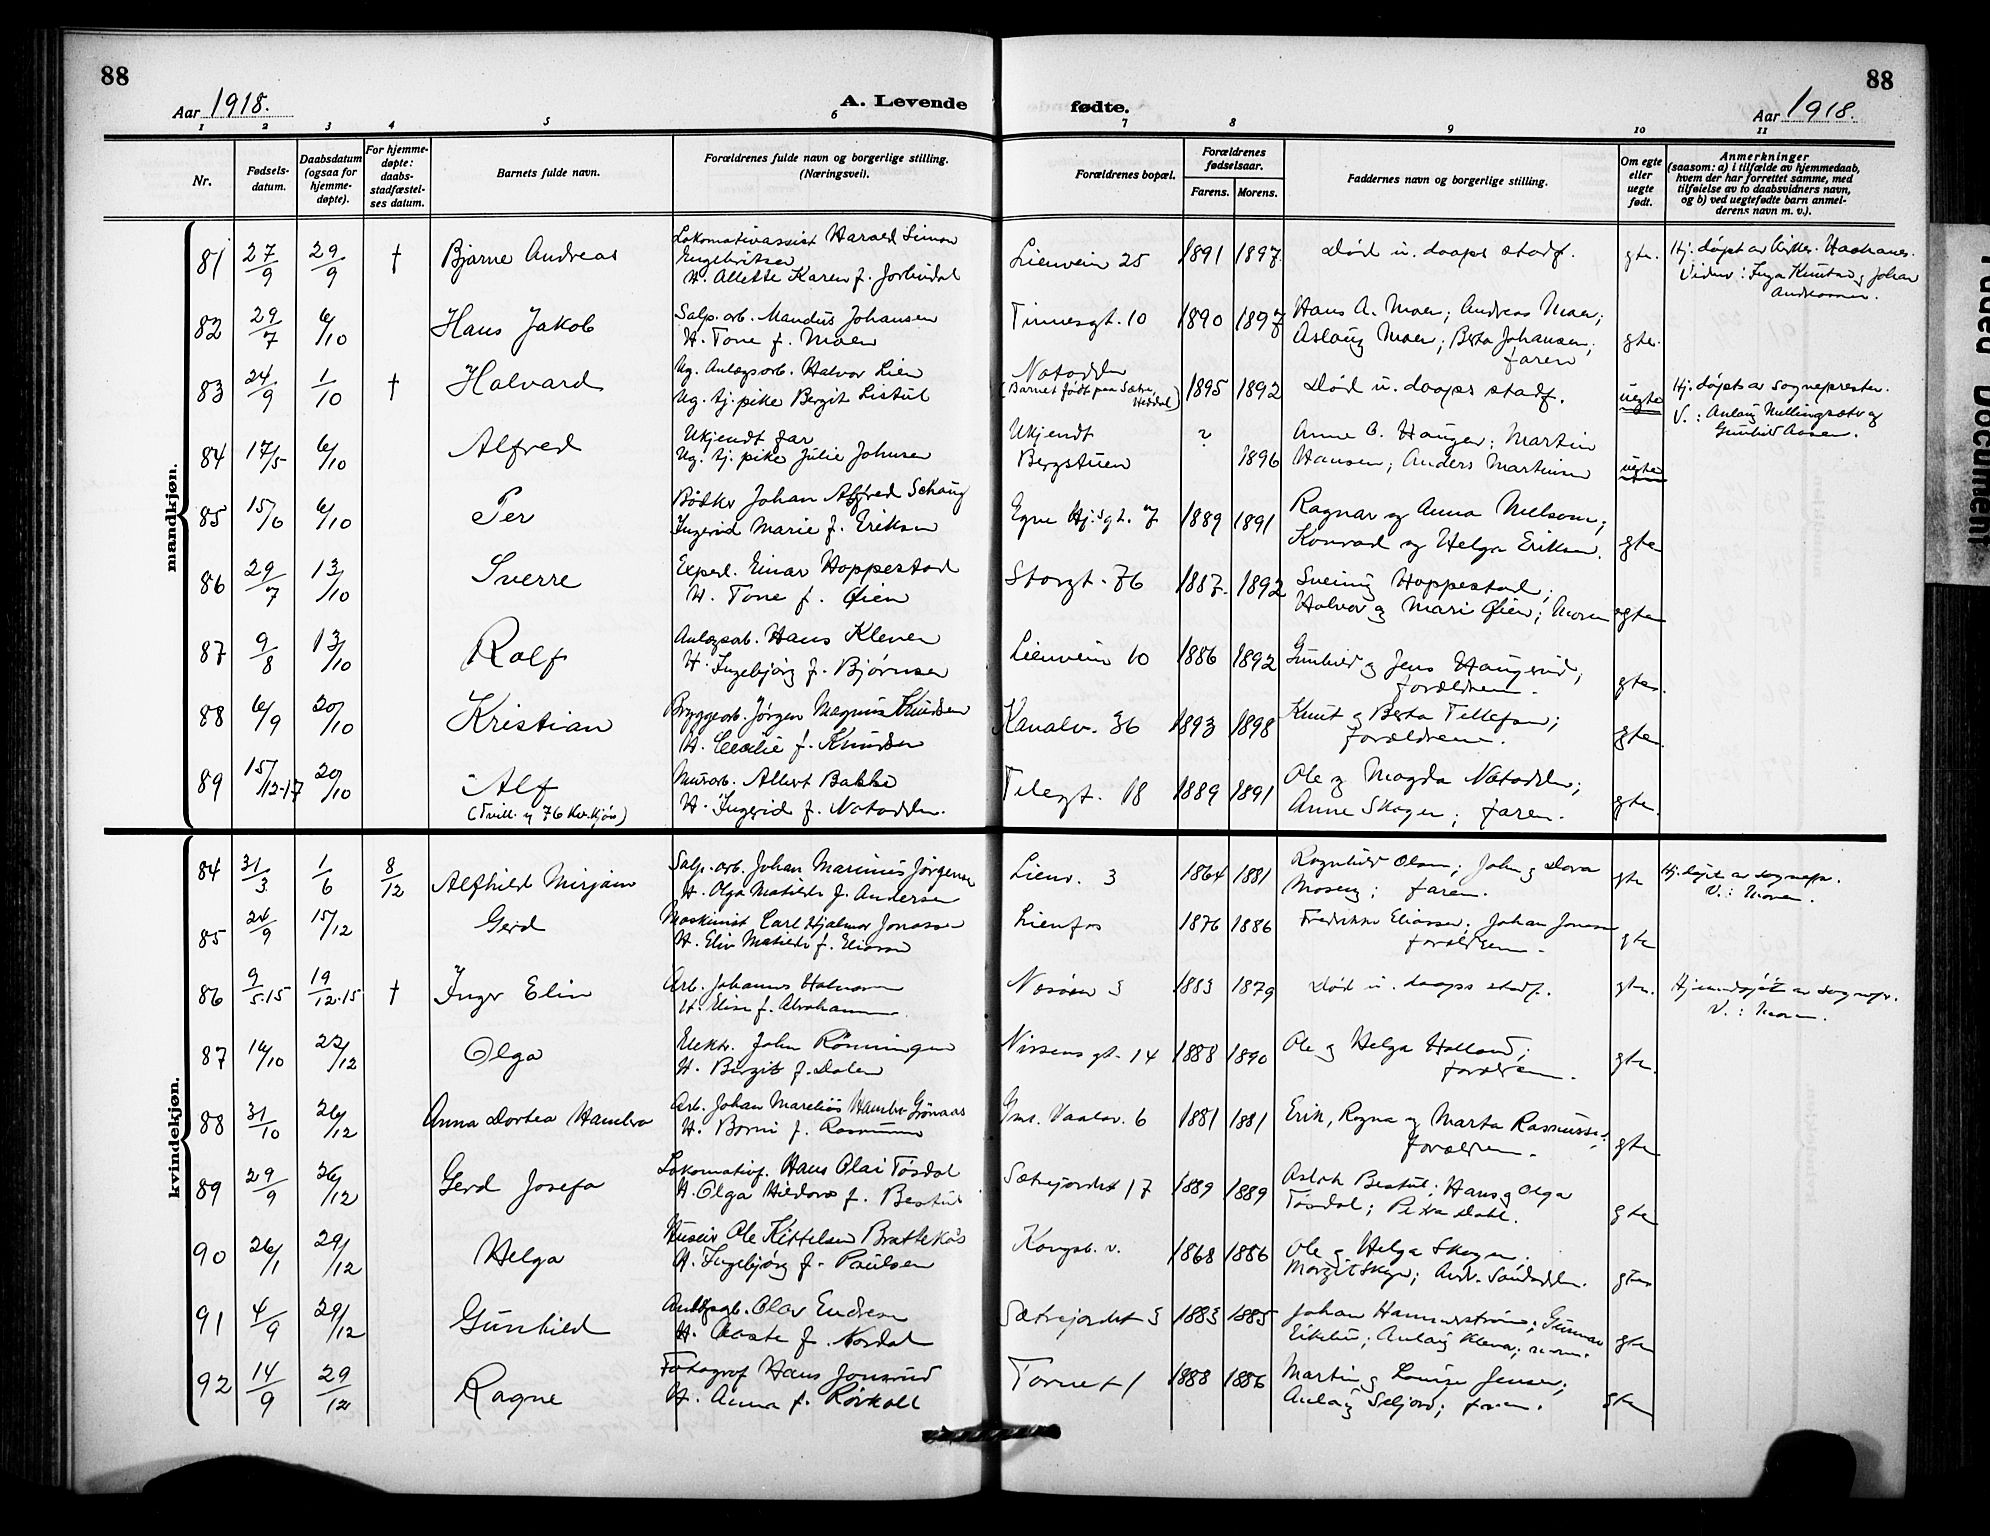 88
88
Aar 1918.
A. Levende
fødte.
Aar 1918.
1 2 3 4 5 6 7 8 9 10 11
Nr.
Fødsels-
datum.
Daabsdatum
(ogsaa for
hjemme-
døpte).
For hjemme-
døpte:
daabs-
stadfæstel-
ses datum.
Barnets fulde navn.
Forældrenes fulde navn og borgerlige stilling.
(Næringsvei).
Forældrenes bopæl.
Forældrenes
fødselsaar.
Farens. Morens.
Faddernes navn og borgerlige stilling.
Om egte
eller
uegte
født.
Anmerkninger
(saasom: a) i tilfælde av hjemmedaab,
hvem der har forrettet samme, med
tilføielse av to daabsvidners navn,
og b) ved uegtefødte barn anmel-
derens navn m. v.).
mandkjøn.
81 27/9 29/9 † Bjarne Andreas
Lokomotivassist Harald Simon
Engebritsen
H. Alette Karen f.
Lienvein 25 1891 1897 Død u. daaps stadf. gte.
Hj. døpt av
Vidner: Inga Knutsen og Johan
Andreassen.
82 29/7 6/10 Hans Jakob
Salp. arb. Mandus Johansen
H. Tone f. Moen
Tinnesgt. 10 1890 1897
Hans A. Moen; Andreas Moen;
Aslaug Moen; Berta Johansen;
faren
gte.
83 24/9 1/10 † Halvard
Ug. Anlægsarb. Halvor Lien
Ug. tj. pike Bergit Listul
Notodden
(Barnet født paa Sætre,
Heddal)
1895 1892 Død u. daaps stadf. uegte
Hj. døpt av sognepresten.
V.: Aslaug
Gunhild Aasen.
84 17/5 6/10 Alfred
Ukjendt far
Ug. tj. pike Julie Johnsen
Ukjendt ?
Bergstuen 1896
Anne O. Hauger; Martin
Hansen; Anders Martinsen
uegte
85 15/6 6/10 Per
Bødker Johan Alfred Schaug
Ingerid Marie f. Eriksen
Egne Hj.sgt. 7 1889 1891
Ragnar og Anna Nelson;
Konrad og Helga Eriksen.
gte
86 29/7 13/10 Sverre
Exped. Einar Hoppestad
H. Tone f. Øien
Storgt. 76 1887 1892
Sveinung Hoppestad;
Halvor og Mari Øien; Moren
gte
87 9/8 13/10 Rolf
Anlægsarb. Hans Kleven
H. Ingebjørg f. Bjørnsen
Lienvein 10 1886 1892
Gunhild og Jens Haugerud;
forældrene.
gte.
88 6/9 20/10 Kristian
Bryggearb. Jørgen Magnus Knudsen
H. Cecilie f. Knudsen
Kanalv. 36 1893 1898
Knut og Berta Tellefsen;
forældrene.
gte.
89 15/12-17 20/10 Alf
(Tvill. m 76 kv. kjøn)
Murarb. Albert Bakke
H. Ingerid f. Notodden.
Telegt. 18 1889 1891
Ole og Magda Notodden;
Anne Skogen; faren.
gte.
kvindekjøn.
84 31/3 1/6 8/12 Alfhild Mirjam
Salp. arb. Johan Marinius Jørgensen
H. Olga Matilde f. Andersen
Lienv. 3 1864 1881
Ragnhild Olsen; John og Dora
Moseng; faren.
gte
Hj. døpt av sognepr.
V.: Moren.
85 24/9 15/12 Gerd
Maskinist Carl Hjalmar Jonassen
H. Elin Matilde f. Eliassen
Lienfos 1876 1886
Fredrikke Eliassen; Johan Jonassen
forældrene.
gte
86 9/5-15 19/12-15 † Inger Elin
Arb. Johannes Halvorsen
H. Elise f. Abrahamsen
Nesøen 3 1883 1879 Død u. daaps stadf. gte.
Hjemmedøpt av sognepr.
V.: Moren.
87 16/10 22/12 Olga
Elektr. John Rønningen
H. Birgit f. Dalen
Nissens gt. 14 1888 1890
Ole og Helga Holland;
forældrene.
gte.
88 31/10 26/12 Anna Dortea Hambro
Arb. Johan Marelius Hambro Grønaas
H. Borni f. Rasmussen
Gml. Vaalav. 6 1881 1881
Erik, Ragna og Marta Rasmussen;
forældrene.
gte
89 29/9 26/12 Gerd Josefa
Lokomotivf. Hans Olai Tøsdal
H. Olga Hildora f. Bestul
Sætrejordet 17 1889 1889
Aslak Bestul; Hans og Olga
Tøsdal; Petra Dahl.
gte
90 26/1 29/12 Helga
Huseier Ole Kittelsen Brattekås
H. Ingebjørg f. Paulsen
Kongsb. v. 1868 1886
Ole og Helga Skogen.
Margit Skogen; Andr.
gte
91 4/9 29/12 Gunhild
Anlægsarb. Olav Endresen
H. Aaste f. Nordal
Sætrejordet 3 1883 1885
Johan Hammerstrøm; Gunnar
Eikelid; Aslaug Kleva; moren.
gte
92 14/9 29/12 Ragne
Fotograf Hans Jonsrud
H. Anna f. Rørholt
Tornet 1 1888 1886
Martin og Louise Jensen;
Aslaug Seljord; faren.
gte